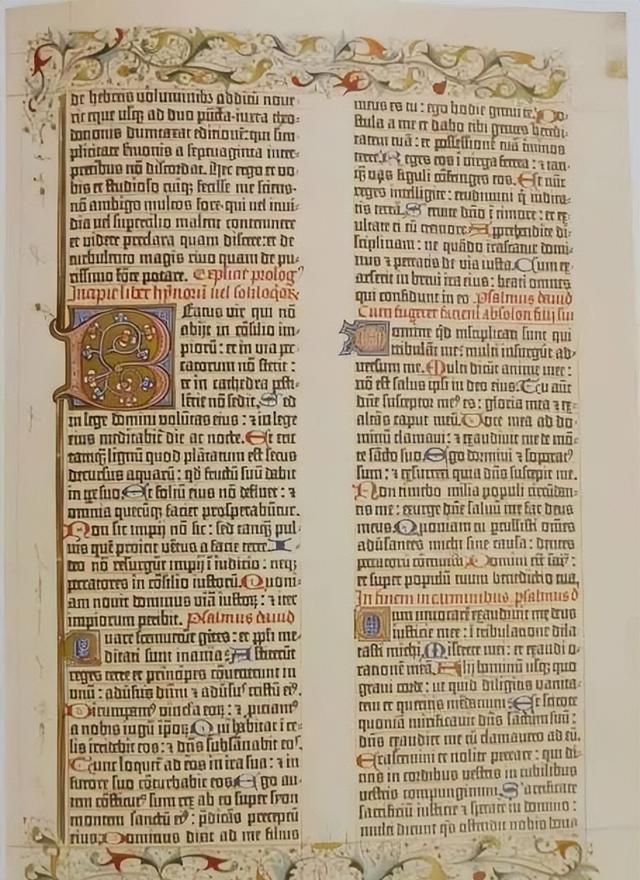 de hebreis voluminibz additū noue-
rit eque usqz ad duo pūcta iuxta theo-
dotionis dumtaxat editionē: qui sim-
plicitate sermonis a septuaginta inter-
pretibus nō discordat. Hec ergo et vo-
bis et studioso cuiqz fecisse me sciens:
nō ambigo multos fore qui vel invi-
dia vel supercilio malent contemnere
et videre preclara quam discere: et de
turbulento magis rivo quam de pu-
rissimo fōte potare. Explicit prolog9
Incipit liber hymnorū vel soliloqiorz
Beatus vir qui nō
abijt in cōsilio im-
piorū: et in via pec-
catorum nō stetit:
et in cathedra pesti-
lētie nō sedit. Sed
in lege domini volūtas eius: et in lege
eius meditabit die ac nocte. Et erit
tamqz lignū quod plātatum est secus
decursus aquarū: qd fructū suū dabit
in tpe suo. Et foliū eius nō defluet: et
omnia quecūqz faciet prosperabūtur.
Non sic impij nō sic: sed tamqz pul-
vis quē proicit vētus a facie terre. I-
deo nō resurgūt impij ī iudicio: neqz
peccatores in cōsilio iustorū. Quoni-
am novit dominus viā iustorz: et iter
impiorum peribit. Psalmus david
Quare fremuerūt gētes: et ppli me-
ditati sunt inania. Astiterūt
reges terre et principes cōvenerunt in
unū: adūsus dnm et adūsus cristū ei9.
Dirumpam9 vincla eorz: et piciam9
a nobis iugū iporz. Qui habitat ī ce-
lis irridebit eos: et dns subsānabit eos.
Tunc loquet ad eos in ira sua: et in
furore suo cōturbabit eos. Ego au-
tem cōstitut9 sum rex ab eo super syon
montem sanctū ei9: pdicās preceptū
eius. Dominus dixit ad me filius
meus es tu: ego hodie genui te. Po-
stula a me et dabo tibi gentes heredi-
tatem tuā: et possessionē tuā tīnos
terre. Reges eos ī virga ferrea: et tan-
qz vas figuli cōfringes eos. Et nūc
reges intelligite: erudimini q iudica-
tis terrā. Servite dno ī timore: et ex-
ultate ei cū tremore. Apprehendite di-
sciplinam: ne quādo irascatur domi-
nus et pereatis de via iusta. Cum ex-
arserit in brevi ira eius: beati omnes
qui confidunt in eo. Psalmus david
Cum fugeret a facie absolon filii sui
Domine qd multiplicati sunt qui
tribulāt me: multi insurgūt ad-
versum me. Multi dicūt anime mee:
nō est salus ipsi in deo eius. Tu autē
dne susceptor me9 es: gloria mea et ex-
altās caput meū. Voce mea ad do-
minū clamavi: et exaudivit me de mō-
te sācto suo. Ego dormivi et soporat9
sum: et exsurrexi quia dns suscepit me.
Non timebo milia populi circūdan-
tis me: exurge dne salvū me fac deus
meus. Quoniam tu percussisti omēs
adūsantes michi sine causa: dentes
peccatorū cōtrivisti. Domini est sal9:
et super populū tuum benedictio tua.
In finem in carminibus. psalmus d
Cum invocarē exaudivit me deus
iusticie mee: ī tribulatione dila-
tasti michi. Miserere mei: et exaudi o-
rationē meā. Filij hominū usqz quo
gravi corde: ut quid diligitis vanita-
tem et queritis mendacium. Et scitote
quoniā mirificavit dns sanctum suū:
dns exaudiet me cū clamavero ad eū.
Irascemini et nolite peccare: qui di-
citis in cordibus vestris in cubilibus
vestris compungimini. Sacrificate
sacrificiū iusticie et sperate in domino:
multi dicunt qs ostendit nobis bona